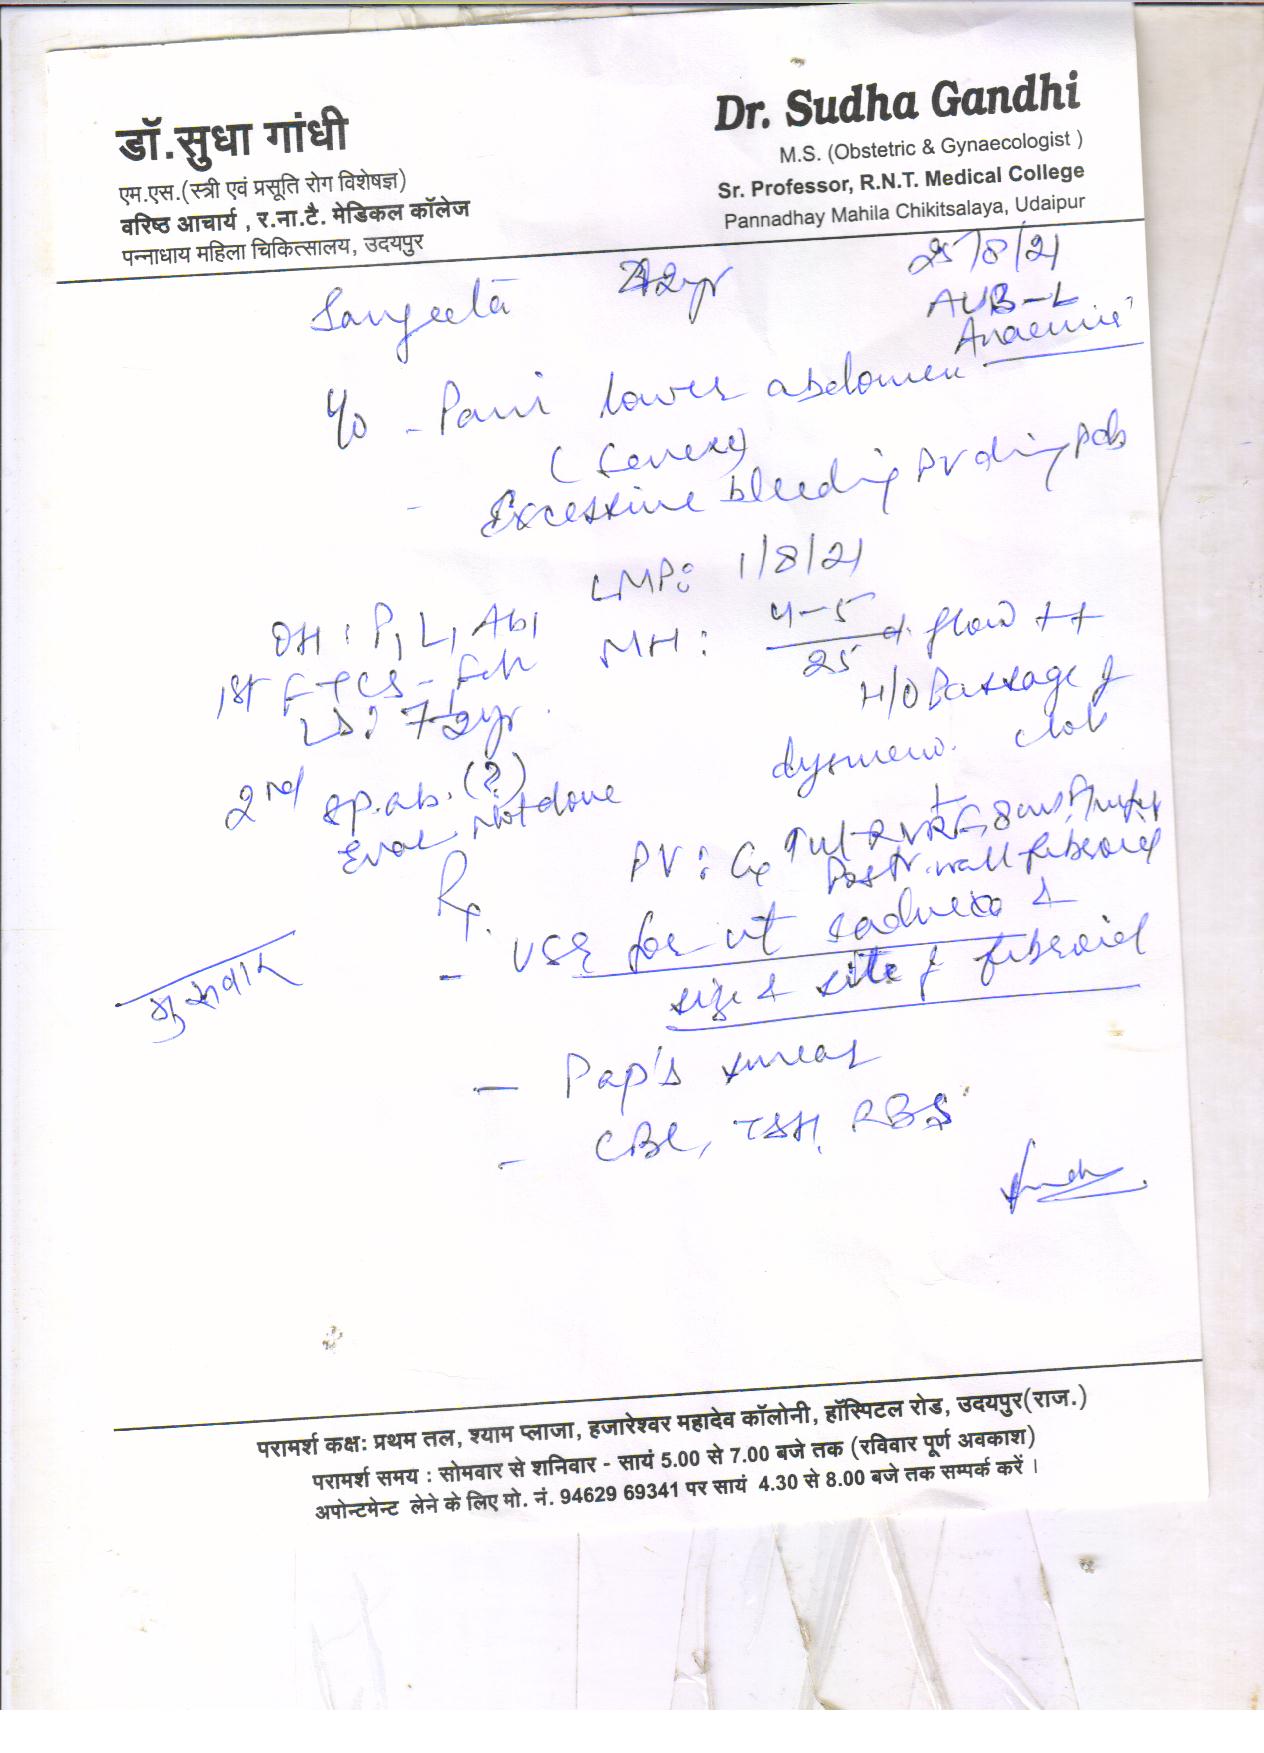 डॉ.सुधा गांधी
एम.एस.(स्त्री एवं प्रसूति रोग विशेषज्ञ)
वरिष्ठ आचार्य , र.ना.टै. मेडिकल कॉलेज
पन्नाधाय महिला चिकित्सालय, उदयपुर
Dr. Sudha Gandhi
M.S. (Obstetric & Gynaecologist )
Sr. Professor, R.N.T. Medical College
Pannadhay Mahila Chikitsalaya, Udaipur
25/8/21
Sangeeta 42yr
AUB-L
Anaemia
- Pain lower abdomen
(Severe)
- Excessive bleeding PV during
LMP: 1/8/21
OH: P1 L1 Ab1
MH: 4-5/25 d. flow ++
1st FTCS - Fch
H/O Passage of
clot
LD:
dysmeno. +
2nd sp.ab. (?)
Evac not done
PV: Cx
Postr. wall fibroid
Rx.
- USG for ut &
size & site of fibroid
गुरुवार
- Pap's smear
- CBC, TSH, RBS
परामर्श कक्ष: प्रथम तल, श्याम प्लाजा, हजारेश्वर महादेव कॉलोनी, हॉस्पिटल रोड, उदयपुर(राज.)
परामर्श समय : सोमवार से शनिवार - सायं 5.00 से 7.00 बजे तक (रविवार पूर्ण अवकाश)
अपोन्टमेन्ट लेने के लिए मो. नं. 94629 69341 पर सायं 4.30 से 8.00 बजे तक सम्पर्क करें ।